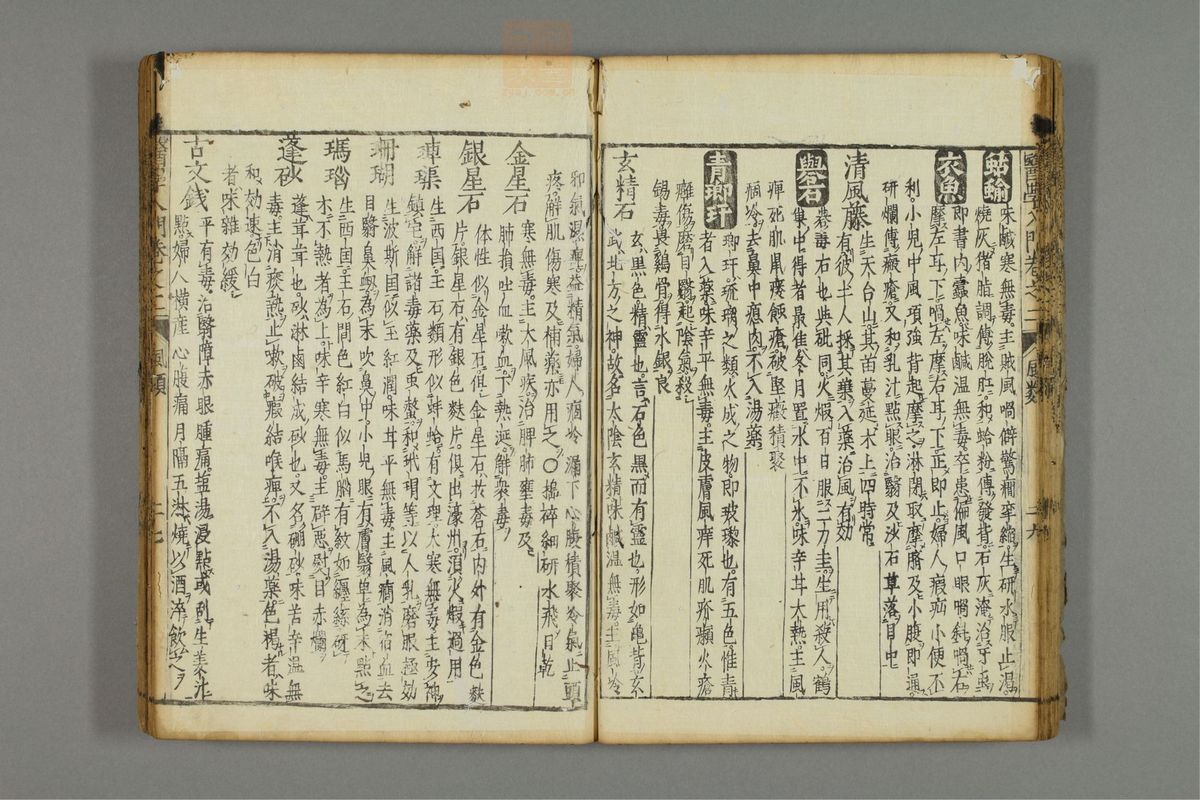 蛞蝓
味鹹寒無毒主賊風喎僻驚癇攣縮生研水服止渴
燒灰猪脂調傅脫肛和蛤粉傅發背石灰淹治牙
衣魚
即書內蠹魚味鹹溫無毒卒患偏風口眼喎斜喎右
摩左耳下喎左摩右耳下正即止婦人瘕疝小便不
利小兒中風項強背起摩之淋閉取摩臍及小腹即通
研爛傅瘢瘡又和乳汁點眼治翳及沙石草落目中
清風藤
生天台山其苗蔓延木上四時常
有彼土人採其藥入藥治風有効
礜石
礜毒石也與砒同火煆百日服一刀圭生用殺人鶴
巢中得者最佳冬月置水中不氷味辛甘大熱主風
痺死肌鼠瘻蝕瘡破堅癥積聚
痼冷去鼻中瘜肉不入湯藥
青瑯玕
瑯玕琉璃之類火成之物即玻瓈也有五色惟青
者入藥味辛平無毒主皮膚風痒死肌疥癩火瘡
癰傷磨目翳起陰氣殺
錫毒畏鷄骨得水銀良
玄精石
玄黑色精靈也言石色黑而有靈也形如龜背玄
武北方之神故名太陰玄精味鹹溫無毒主風冷
醫學入門卷之二 風類 二六
邪氣濕痺益精氣婦人痼冷漏下心腹積聚冷氣止頭
疼解肌傷寒及補藥亦用之○搗碎細研水飛日乾
金星石
寒無毒主大風疾治脾肺壅毒及
肺損吐血嗽血下熱涎解衆毒
銀星石
体性似金星石但金星石於蒼石內外有金色麩
片銀星石有銀色麩片俱出濠州須火煆過用
硨磲
生西国玉石類形似蚌蛤有文理大寒無毒主安神
鎮宅解諸毒藥及虫螫和玳瑁等以人乳磨服極効
珊瑚
生波斯国似玉紅潤味甘平無毒主風癇消宿血去
目翳鼻衂為末吹鼻中小兒眼有膚翳單為末點之
瑪瑙
生西国玉石間色紅白似馬腦有紋如纏絲砑
木不熱者為上味辛寒無毒主碎惡熨目赤爛
蓬砂
蓬茸茸也砂淋鹵結成砂也又名硼砂味苦辛溫無
毒主消痰熱止嗽破癥結喉痺不入湯藥色褐者味
和効速色白
者味雜効緩
古文錢
平有毒治翳障赤眼腫痛塩湯浸點或刮生姜汁
點婦人橫產心腹痛月隔五淋燒以酒淬飲之
醫學入門卷之二 風類 二七